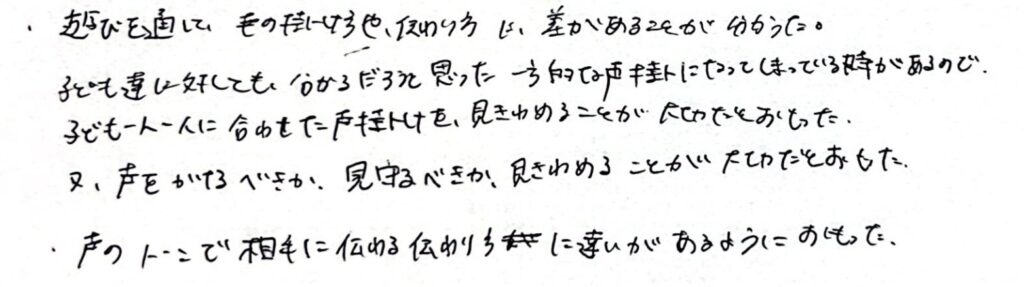 ・遊びを通して、声の掛け方や、伝わり方に、差があることが分かった。
子ども達に対しても、分かるだろうと思った一方的な声掛けになってしまっている時があるので、
子ども一人一人に合わせた声掛けを、見きわめることが大切だとおもった。
又、声をかけるべきか、見守るべきか、見きわめることが大切だとおもった。
・声のトーンで相手に伝わる伝わり方に違いがあるようにおもった。